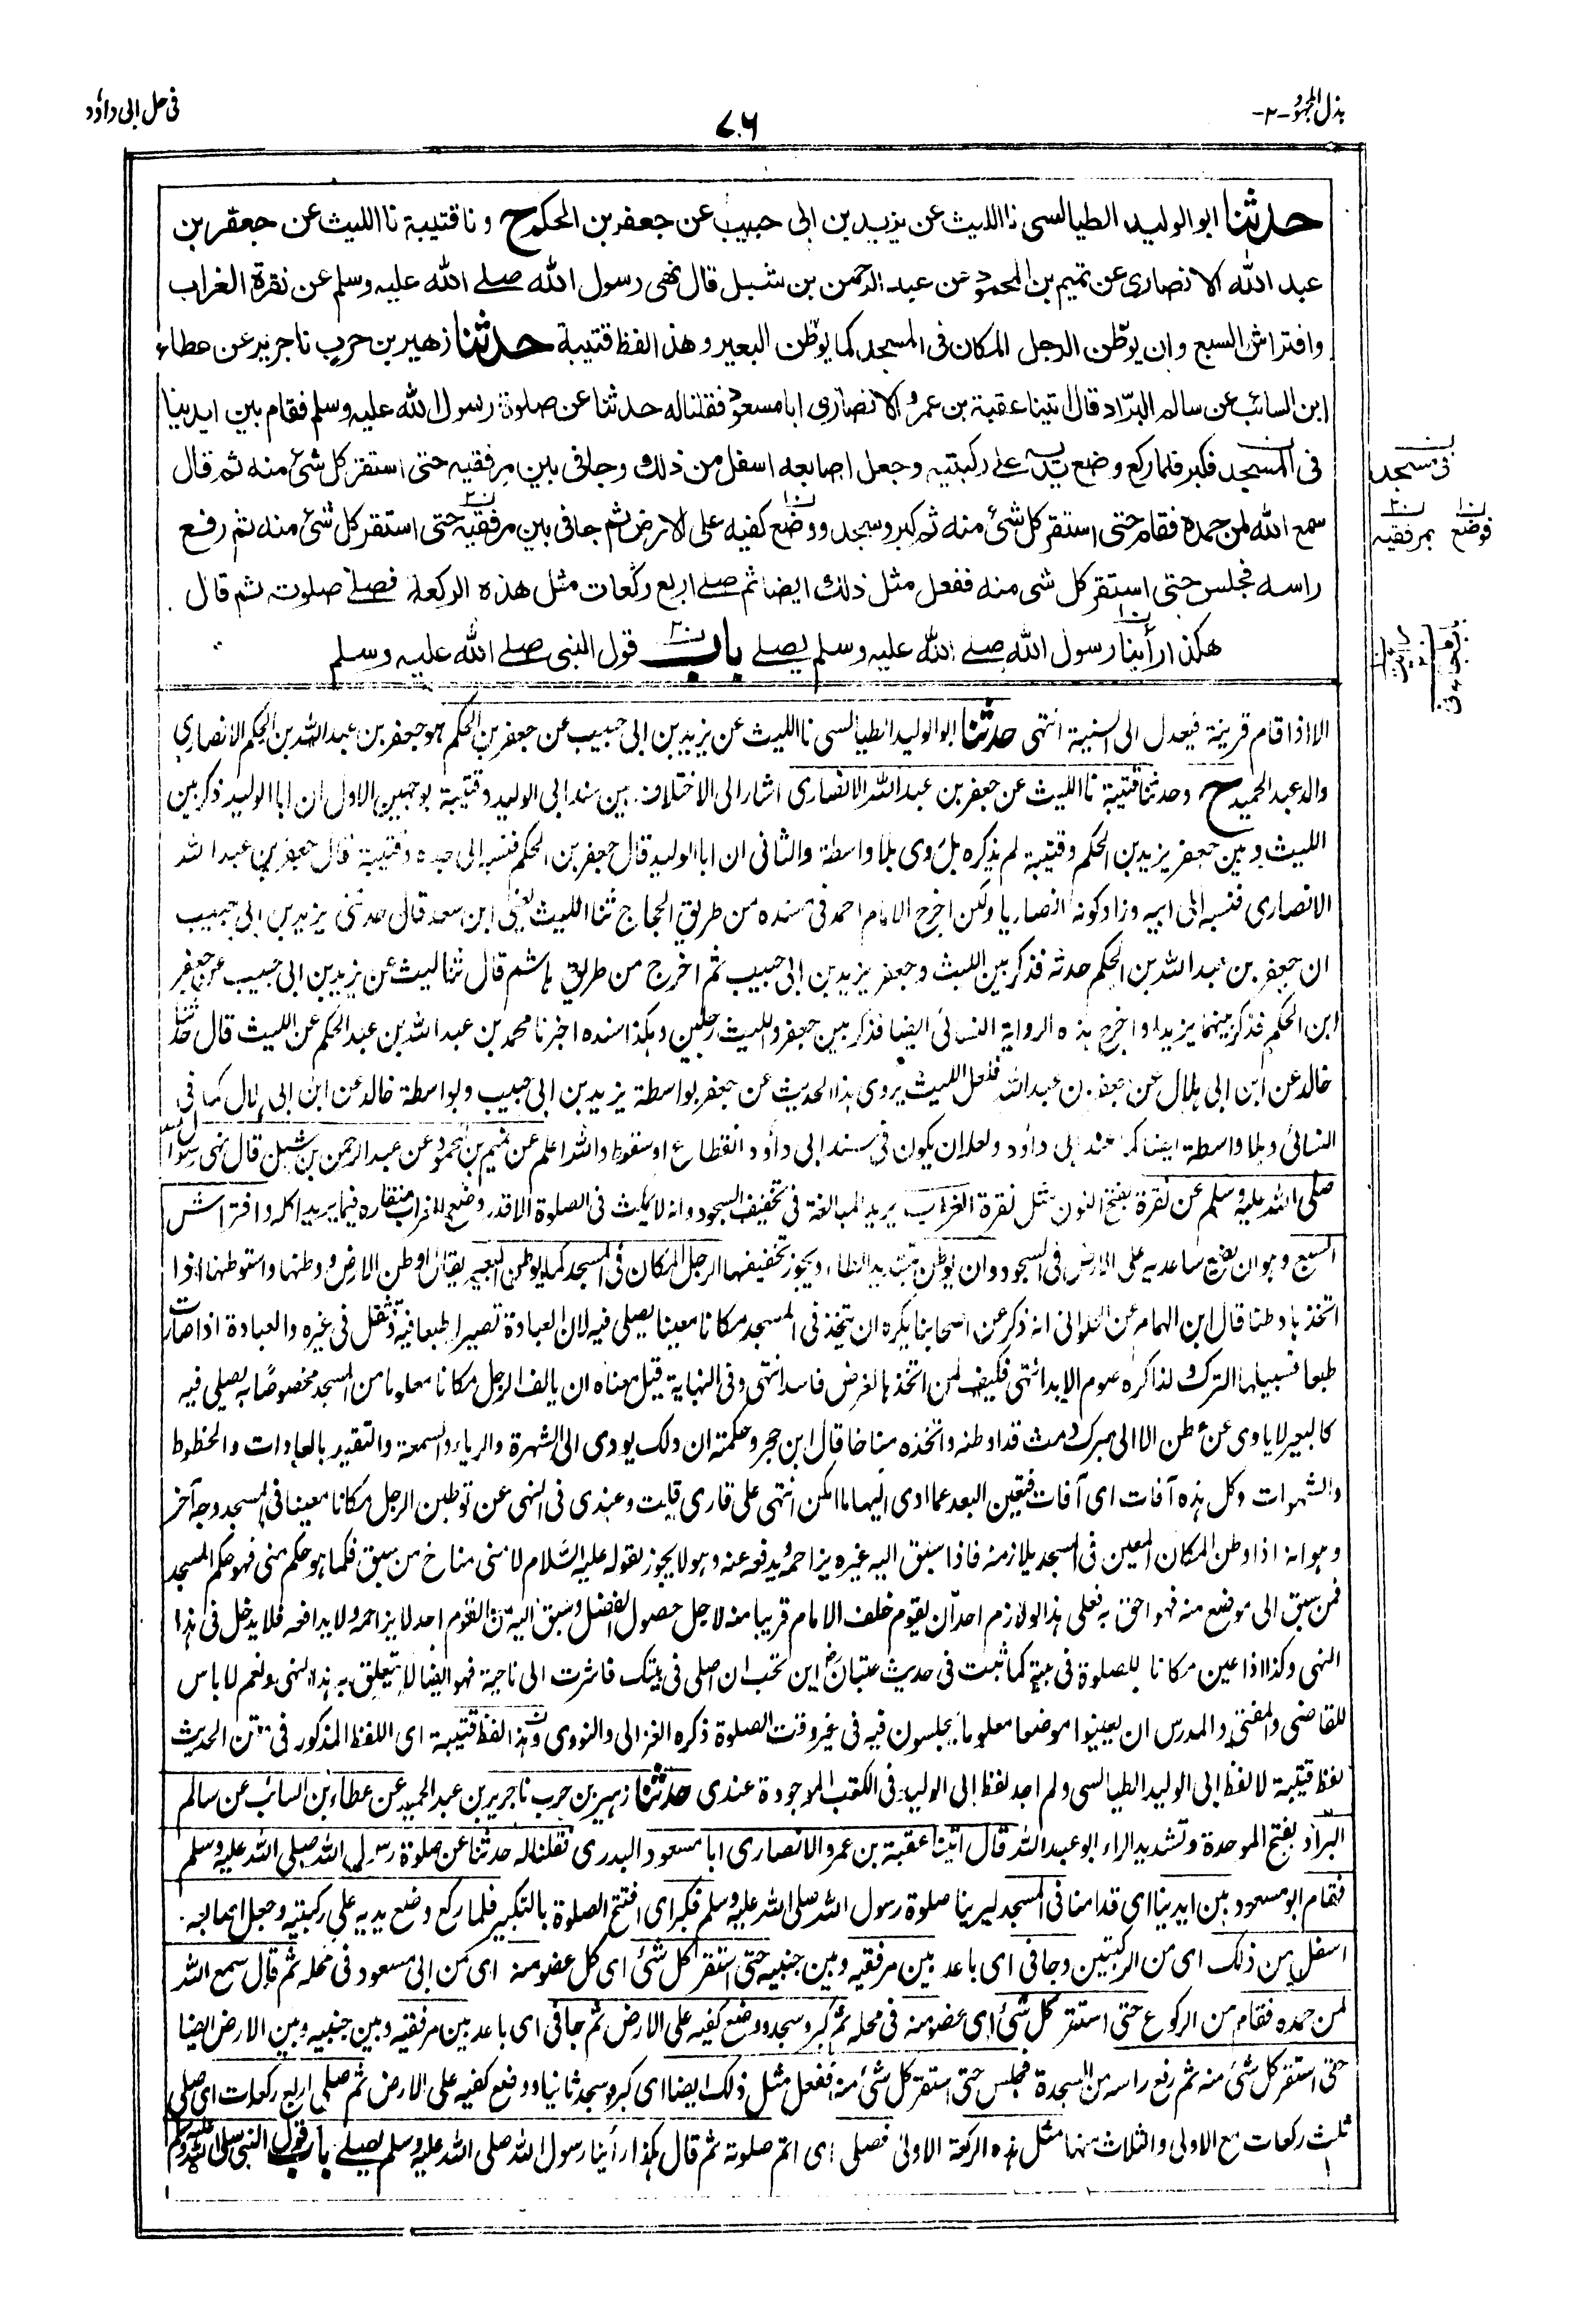 بذل المجهود -٢-
٧٠٦
فی حل ابی داؤد
حدثنا ابو الولید الطیالسی نا اللیث عن یزید بن ابی حبیب عن جعفر بن الحکم ح و نا قتیبة نا اللیث عن جعفر بن
عبد الله الانصاری عن تمیم بن المحمود عن عبد الرحمن بن شبل قال نهی رسول الله صلے الله علیه وسلم عن نقرة الغراب
وافتراش السبع وان یوطّن الرجل المکان فی المسجد کما یوطّن البعیر وهذا لفظ قتیبة حدثنا زهیر بن حرب نا جریر عن عطاء
ابن السائب عن سالم البرّاد قال اتینا عقبة بن عمرو الانصاری ابا مسعود فقلنا له حدثنا عن صلوة رسول الله علیه وسلم فقام بین ایدینا
فی المسجد فکبر فلما رکع وضع یدیه علے رکبتیه وجعل اصابعه اسفل من ذلك وجافی بین مرفقیه حتی استقر کل شئ منه ثم قال
سمع الله لمن حمده فقام حتی استقر کل شئ منه ثم کبر وسجد ووضع کفیه علی الارض ثم جافی بین مرفقیه حتی استقر کل شئ منه ثم رفع
راسه فجلس حتی استقر کل شی منه ففعل مثل ذلك ایضا ثم صلے اربع رکعات مثل هذه الرکعة فصلے صلوته ثم قال
هکذا رأینا رسول الله صلے الله علیه وسلم یصلے باب قول النبی صلے الله علیه وسلم
فی مسجد
فوضع بمرفقیه
الا اذا قام قرینة فیعدل الی السنیة انتهی حدثنا ابو الولید الطیالسی نا اللیث عن یزید بن ابی حبیب عن جعفر بن الحکم هو جعفر بن عبد الله بن الحکم الانصاری
والد عبد الحمید ح وحدثنا قتیبة نا اللیث عن جعفر بن عبد الله الانصاری اشار الی الاختلاف بین سند ابی الولید وقتیبة بوجهین الاول ان ابا الولید ذکر بین
اللیث وبین جعفر یزید بن الحکم وقتیبة لم یذکره بل روی بلا واسطة والثانی ان ابا الولید قال جعفر بن الحکم فنسبه الی جده وقتیبة قال جعفر بن عبد الله
الانصاری فنسبه الی ابیه وزاد کونه انصاریا ولکن اخرج الامام احمد فی مسنده من طریق الحجاج ثنا اللیث یعنی ابن سعد قال حدثنی یزید بن ابی حبیب
ان جعفر بن عبد الله بن الحکم حدثه فذکر بین اللیث وجعفر یزید بن ابی حبیب ثم اخرج من طریق هاشم قال ثنا لیث عن یزید بن ابی حبیب عن جعفر
ابن الحکم فذکر بینهما یزید واخرج هذه الروایة النسائی ایضا فذکر بین جعفر واللیث رجلین وهکذا سنده اخبرنا محمد بن عبد الله بن عبد الحکم عن اللیث قال حدثنا
خالد عن ابن ابی هلال عن جعفر بن عبد الله فلعل اللیث یروی هذا الحدیث عن جعفر بواسطة یزید بن ابی حبیب وبواسطة خالد عن ابن ابی هلال کما فی
النسائی وبلا واسطة ایضا کما عند ابی داؤد ولعل ان یکون فی سند ابی داؤد انقطاع او سقوط والله اعلم عن تمیم بن المحمود عن عبد الرحمن بن شبل قال نهی رسول الله
صلی الله علیه وسلم عن نقرة بفتح النون مثل نقرة الغراب یرید المبالغة فی تخفیف السجود وانه لا یمکث فی الصلوة الا قدر وضع الغراب منقاره فیما یرید اکله وافتراش
السبع وهو ان یضع ساعدیه علی الارض فی السجود وان یوطن بتشدید الطاء ویجوز تخفیفها الرجل المکان فی المسجد کما یوطن البعیر یقال اوطن الارض ووطنها واستوطنها اذا
اتخذها وطنا قال ابن الهمام عن الحلوانی انه ذکر عن اصحابنا یکره ان یتخذ فی المسجد مکانا معینا یصلی فیه لان العبادة تصیر له طبعا فیه وتثقل فی غیره والعبادة اذا صارت
طبعا فسبیلها الترك ولذا کره صوم الابد انتهی فکیف لمن اتخذها لغرض فاسد انتهی وفی النهایة قیل معناه ان یالف الرجل مکانا معلوما من المسجد مخصوصا به یصلی فیه
کالبعیر لا یاوی عن عطن الا الی مبرك دمث قد اوطنه واتخذه مناخا قال ابن حجر وحکمته ان ذلك یودی الی الشهرة والریاء والسمعة والتقید بالعادات والحظوظ
والشهوات وکل هذه آفات ای آفات فتعین البعد عما ادی الیها ما امکن انتهی علی قاری قلت وعندی فی النهی عن توطین الرجل مکانا معینا فی المسجد وجه آخر
وهو انه اذا وطن المکان المعین فی المسجد یلازمه فاذا سبق الیه غیره یزاحمه ویدفعه عنه وهو لا یجوز لقوله علیه السلام لا منی مناخ من سبق فکما هو حکم منی فهو حکم المسجد
فمن سبق الی موضع منه فهو احق به فعلی هذا لو لازم احد ان یقوم خلف الامام قریبا منه لاجل حصول الفضل وسبق الیه من القوم احد لا یزاحمه ولا یدافعه فلا یدخل فی هذا
النهی وکذا اذا عین مکانا للصلوة فی بیته کما ثبت فی حدیث عتبان این تحب ان اصلی فی بیتك فاشرت الی ناحیة فهو ایضا لا یتعلق به هذا النهی ونعم لا باس
للقاضی والمفتی والمدرس ان یعینوا موضعا معلوما یجلسون فیه فی غیر وقت الصلوة ذکره الغزالی والنووی وهذا لفظ قتیبة ای اللفظ المذکور فی متن الحدیث
لفظ قتیبة لا لفظ ابی الولید الطیالسی ولم اجد لفظ ابی الولید فی الکتب الموجودة عندی حدثنا زهیر بن حرب نا جریر بن عبد الحمید عن عطاء بن السائب عن سالم
البرّاد بفتح الموحدة وتشدید الراء ابو عبد الله قال اتینا عقبة بن عمرو الانصاری ابا مسعود البدری فقلنا له حدثنا عن صلوة رسول الله صلی الله علیه وسلم
فقام ابو مسعود بین ایدینا ای قدامنا فی المسجد لیرینا صلوة رسول الله صلی الله علیه وسلم فکبر ای افتتح الصلوة بالتکبیر فلما رکع وضع یدیه علی رکبتیه وجعل اصابعه
اسفل من ذلك ای من الرکبتین وجافی ای باعد بین مرفقیه وبین جنبیه حتی استقر کل شئ ای کل عضو منه ای من ابی مسعود فی محله ثم قال سمع الله
لمن حمده فقام من الرکوع حتی استقر کل شئ ای عضو منه فی محله ثم کبر وسجد ووضع کفیه علی الارض ثم جافی ای باعد بین مرفقیه وبین جنبیه وبین الارض ایضا
حتی استقر کل شئ منه ثم رفع راسه من السجدة فجلس حتی استقر کل شئ منه ففعل مثل ذلك ایضا ای کبر وسجد ثانیا ووضع کفیه علی الارض ثم صلی اربع رکعات ای صلی
ثلث رکعات مع الاولی والثلاث منها مثل هذه الرکعة الاولی فصلی ای اتم صلوته ثم قال هکذا رأینا رسول الله صلی الله علیه وسلم یصلے باب قول النبی صلی الله علیه وسلم